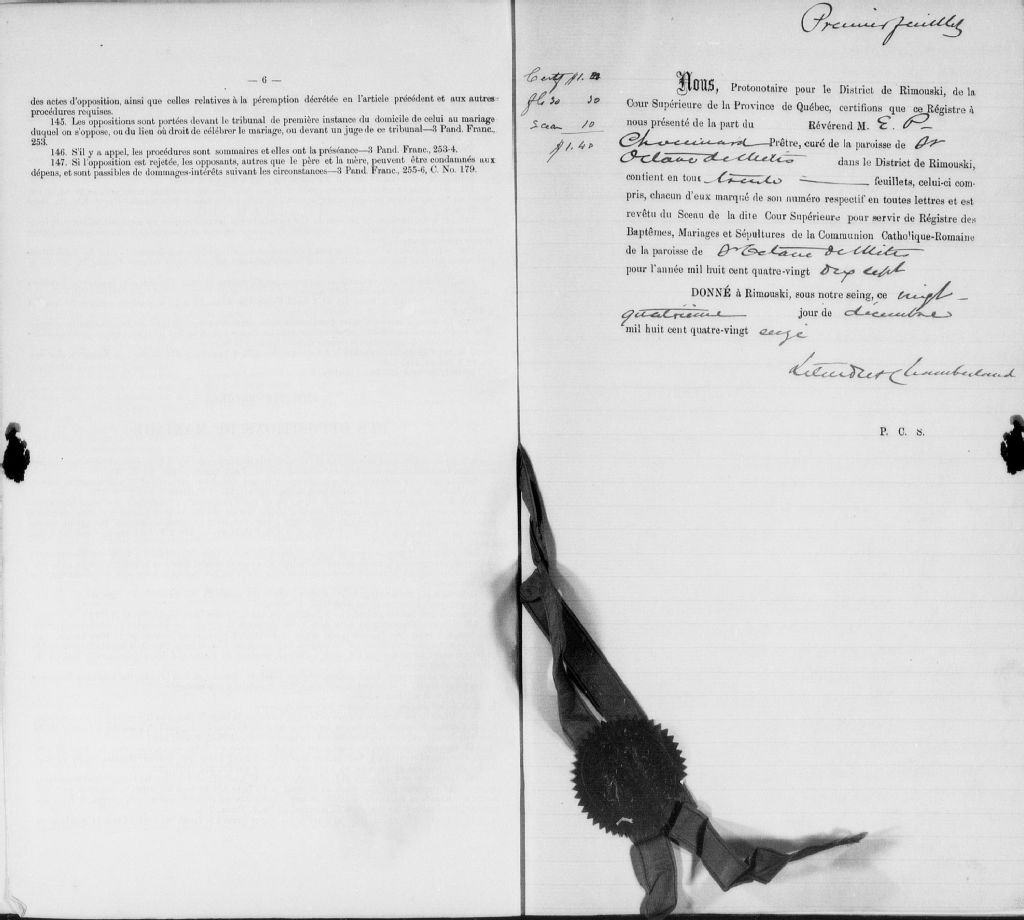 — 6 —
des actes d'opposition, ainsi que celles relatives à la péremption décrétée en l'article précédent et aux autres
procédures requises.
145. Les oppositions sont portées devant le tribunal de première instance du domicile de celui au mariage
duquel on s'oppose, ou du lieu où droit de célébrer le mariage, ou devant un juge de ce tribunal—3 Pand. Franc.,
253.
146. S'il y a appel, les procédures sont sommaires et elles ont la préséance—3 Pand. Franc., 253-4.
147. Si l'opposition est rejetée, les opposants, autres que le père et la mère, peuvent être condamnés aux
dépens, et sont passibles de dommages-intérêts suivant les circonstances—3 Pand. Franc., 255-6, C. No. 179.
Premier feuillet
Certf $1.
30
Sceau 10
$1.40
Nous, Protonotaire pour le District de Rimouski, de la
Cour Supérieure de la Province de Québec, certifions que ce Régistre à
nous présenté de la part du Révérend M. E. P-
Chouinard Prêtre, curé de la paroisse de St
Octave de Métis dans le District de Rimouski,
contient en tout trente feuillets, celui-ci com-
pris, chacun d'eux marqué de son numéro respectif en toutes lettres et est
revêtu du Sceau de la dite Cour Supérieure pour servir de Régistre des
Baptêmes, Mariages et Sépultures de la Communion Catholique-Romaine
de la paroisse de St Octave de Métis
pour l'année mil huit cent quatre-vingt dix sept
DONNÉ à Rimouski, sous notre seing, ce vingt-
quatrième jour de décembre
mil huit cent quatre-vingt seize
Chamberland
P. C. S.